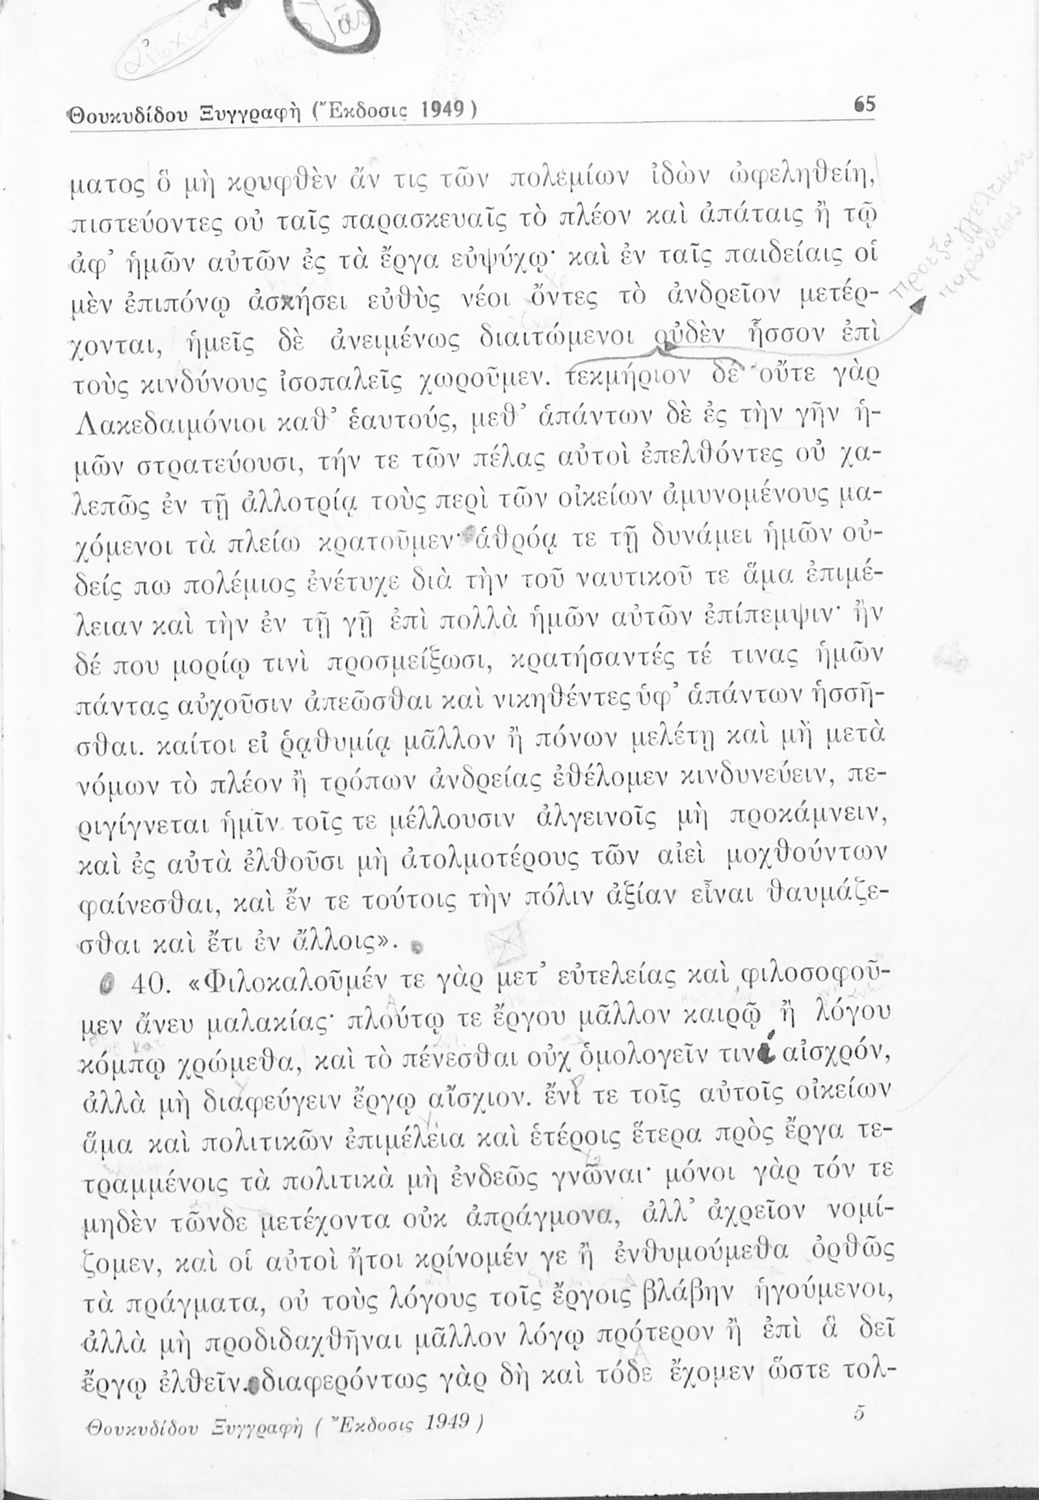 Τὰς
Θουκυδίδου Ξυγγραφὴ (Ἔκδοσις 1949)
65
ματος ὃ μὴ κρυφθὲν ἄν τις τῶν πολεμίων ἰδὼν ὠφεληθείη,
πιστεύοντες οὐ ταῖς παρασκευαῖς τὸ πλέον καὶ ἀπάταις ἢ τῷ
ἀφ’ ἡμῶν αὐτῶν ἐς τὰ ἔργα εὐψύχῳ· καὶ ἐν ταῖς παιδείαις οἱ
μὲν ἐπιπόνῳ ἀσκήσει εὐθὺς νέοι ὄντες τὸ ἀνδρεῖον μετέρ-
χονται, ἡμεῖς δὲ ἀνειμένως διαιτώμενοι οὐδὲν ἧσσον ἐπὶ
τοὺς κινδύνους ἰσοπαλεῖς χωροῦμεν. τεκμήριον δέ· οὔτε γὰρ
Λακεδαιμόνιοι καθ’ ἑαυτούς, μεθ’ ἁπάντων δὲ ἐς τὴν γῆν ἡ-
μῶν στρατεύουσι, τήν τε τῶν πέλας αὐτοὶ ἐπελθόντες οὐ χα-
λεπῶς ἐν τῇ ἀλλοτρίᾳ τοὺς περὶ τῶν οἰκείων ἀμυνομένους μα-
χόμενοι τὰ πλείω κρατοῦμεν· ἁθρόᾳ τε τῇ δυνάμει ἡμῶν οὐ-
δείς πω πολέμιος ἐνέτυχε διὰ τὴν τοῦ ναυτικοῦ τε ἅμα ἐπιμέ-
λειαν καὶ τὴν ἐν τῇ γῇ ἐπὶ πολλὰ ἡμῶν αὐτῶν ἐπίπεμψιν· ἢν
δέ που μορίῳ τινὶ προσμείξωσι, κρατήσαντές τέ τινας ἡμῶν
πάντας αὐχοῦσιν ἀπεῶσθαι καὶ νικηθέντες ὑφ’ ἁπάντων ἡσσῆ-
σθαι. καίτοι εἰ ῥᾳθυμίᾳ μᾶλλον ἢ πόνων μελέτῃ καὶ μὴ μετὰ
νόμων τὸ πλέον ἢ τρόπων ἀνδρείας ἐθέλομεν κινδυνεύειν, πε-
ριγίγνεται ἡμῖν τοῖς τε μέλλουσιν ἀλγεινοῖς μὴ προκάμνειν,
καὶ ἐς αὐτὰ ἐλθοῦσι μὴ ἀτολμοτέρους τῶν αἰεὶ μοχθούντων
φαίνεσθαι, καὶ ἔν τε τούτοις τὴν πόλιν ἀξίαν εἶναι θαυμάζε-
σθαι καὶ ἔτι ἐν ἄλλοις».
40. «Φιλοκαλοῦμέν τε γὰρ μετ’ εὐτελείας καὶ φιλοσοφοῦ-
μεν ἄνευ μαλακίας· πλούτῳ τε ἔργου μᾶλλον καιρῷ ἢ λόγου
κόμπῳ χρώμεθα, καὶ τὸ πένεσθαι οὐχ ὁμολογεῖν τινί αἰσχρόν,
ἀλλὰ μὴ διαφεύγειν ἔργῳ αἴσχιον. ἔνι τε τοῖς αὐτοῖς οἰκείων
ἅμα καὶ πολιτικῶν ἐπιμέλεια καὶ ἑτέροις ἕτερα πρὸς ἔργα τε-
τραμμένοις τὰ πολιτικὰ μὴ ἐνδεῶς γνῶναι· μόνοι γὰρ τόν τε
μηδὲν τῶνδε μετέχοντα οὐκ ἀπράγμονα, ἀλλ’ ἀχρεῖον νομί-
ζομεν, καὶ οἱ αὐτοὶ ἤτοι κρίνομέν γε ἢ ἐνθυμούμεθα ὀρθῶς
τὰ πράγματα, οὐ τοὺς λόγους τοῖς ἔργοις βλάβην ἡγούμενοι,
ἀλλὰ μὴ προδιδαχθῆναι μᾶλλον λόγῳ πρότερον ἢ ἐπὶ ἃ δεῖ
ἔργῳ ἐλθεῖν. διαφερόντως γὰρ δὴ καὶ τόδε ἔχομεν ὥστε τολ-
Θουκυδίδου Ξυγγραφὴ (Ἔκδοσις 1949)
5